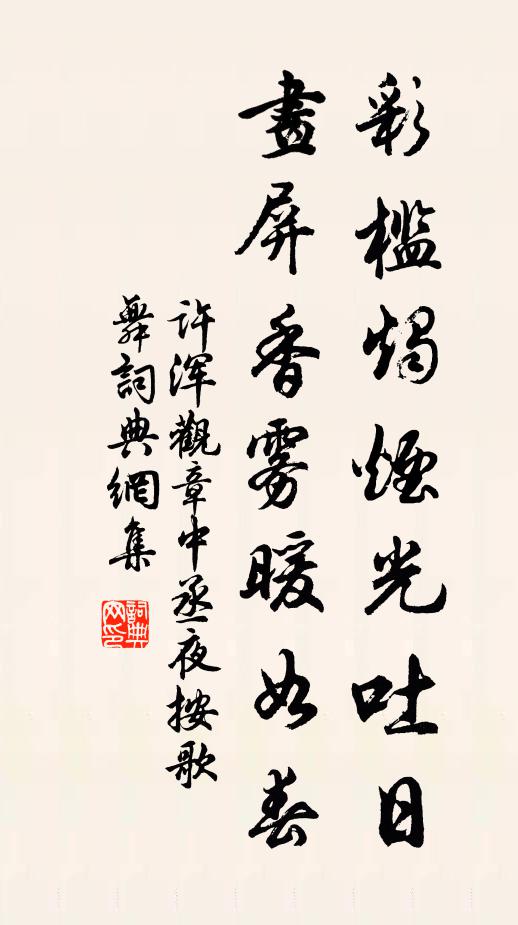 彩檻燭煙光吐日
畫屏香霧暖如春
許渾觀章中丞夜按歌
舞詞典網集
詞典網印